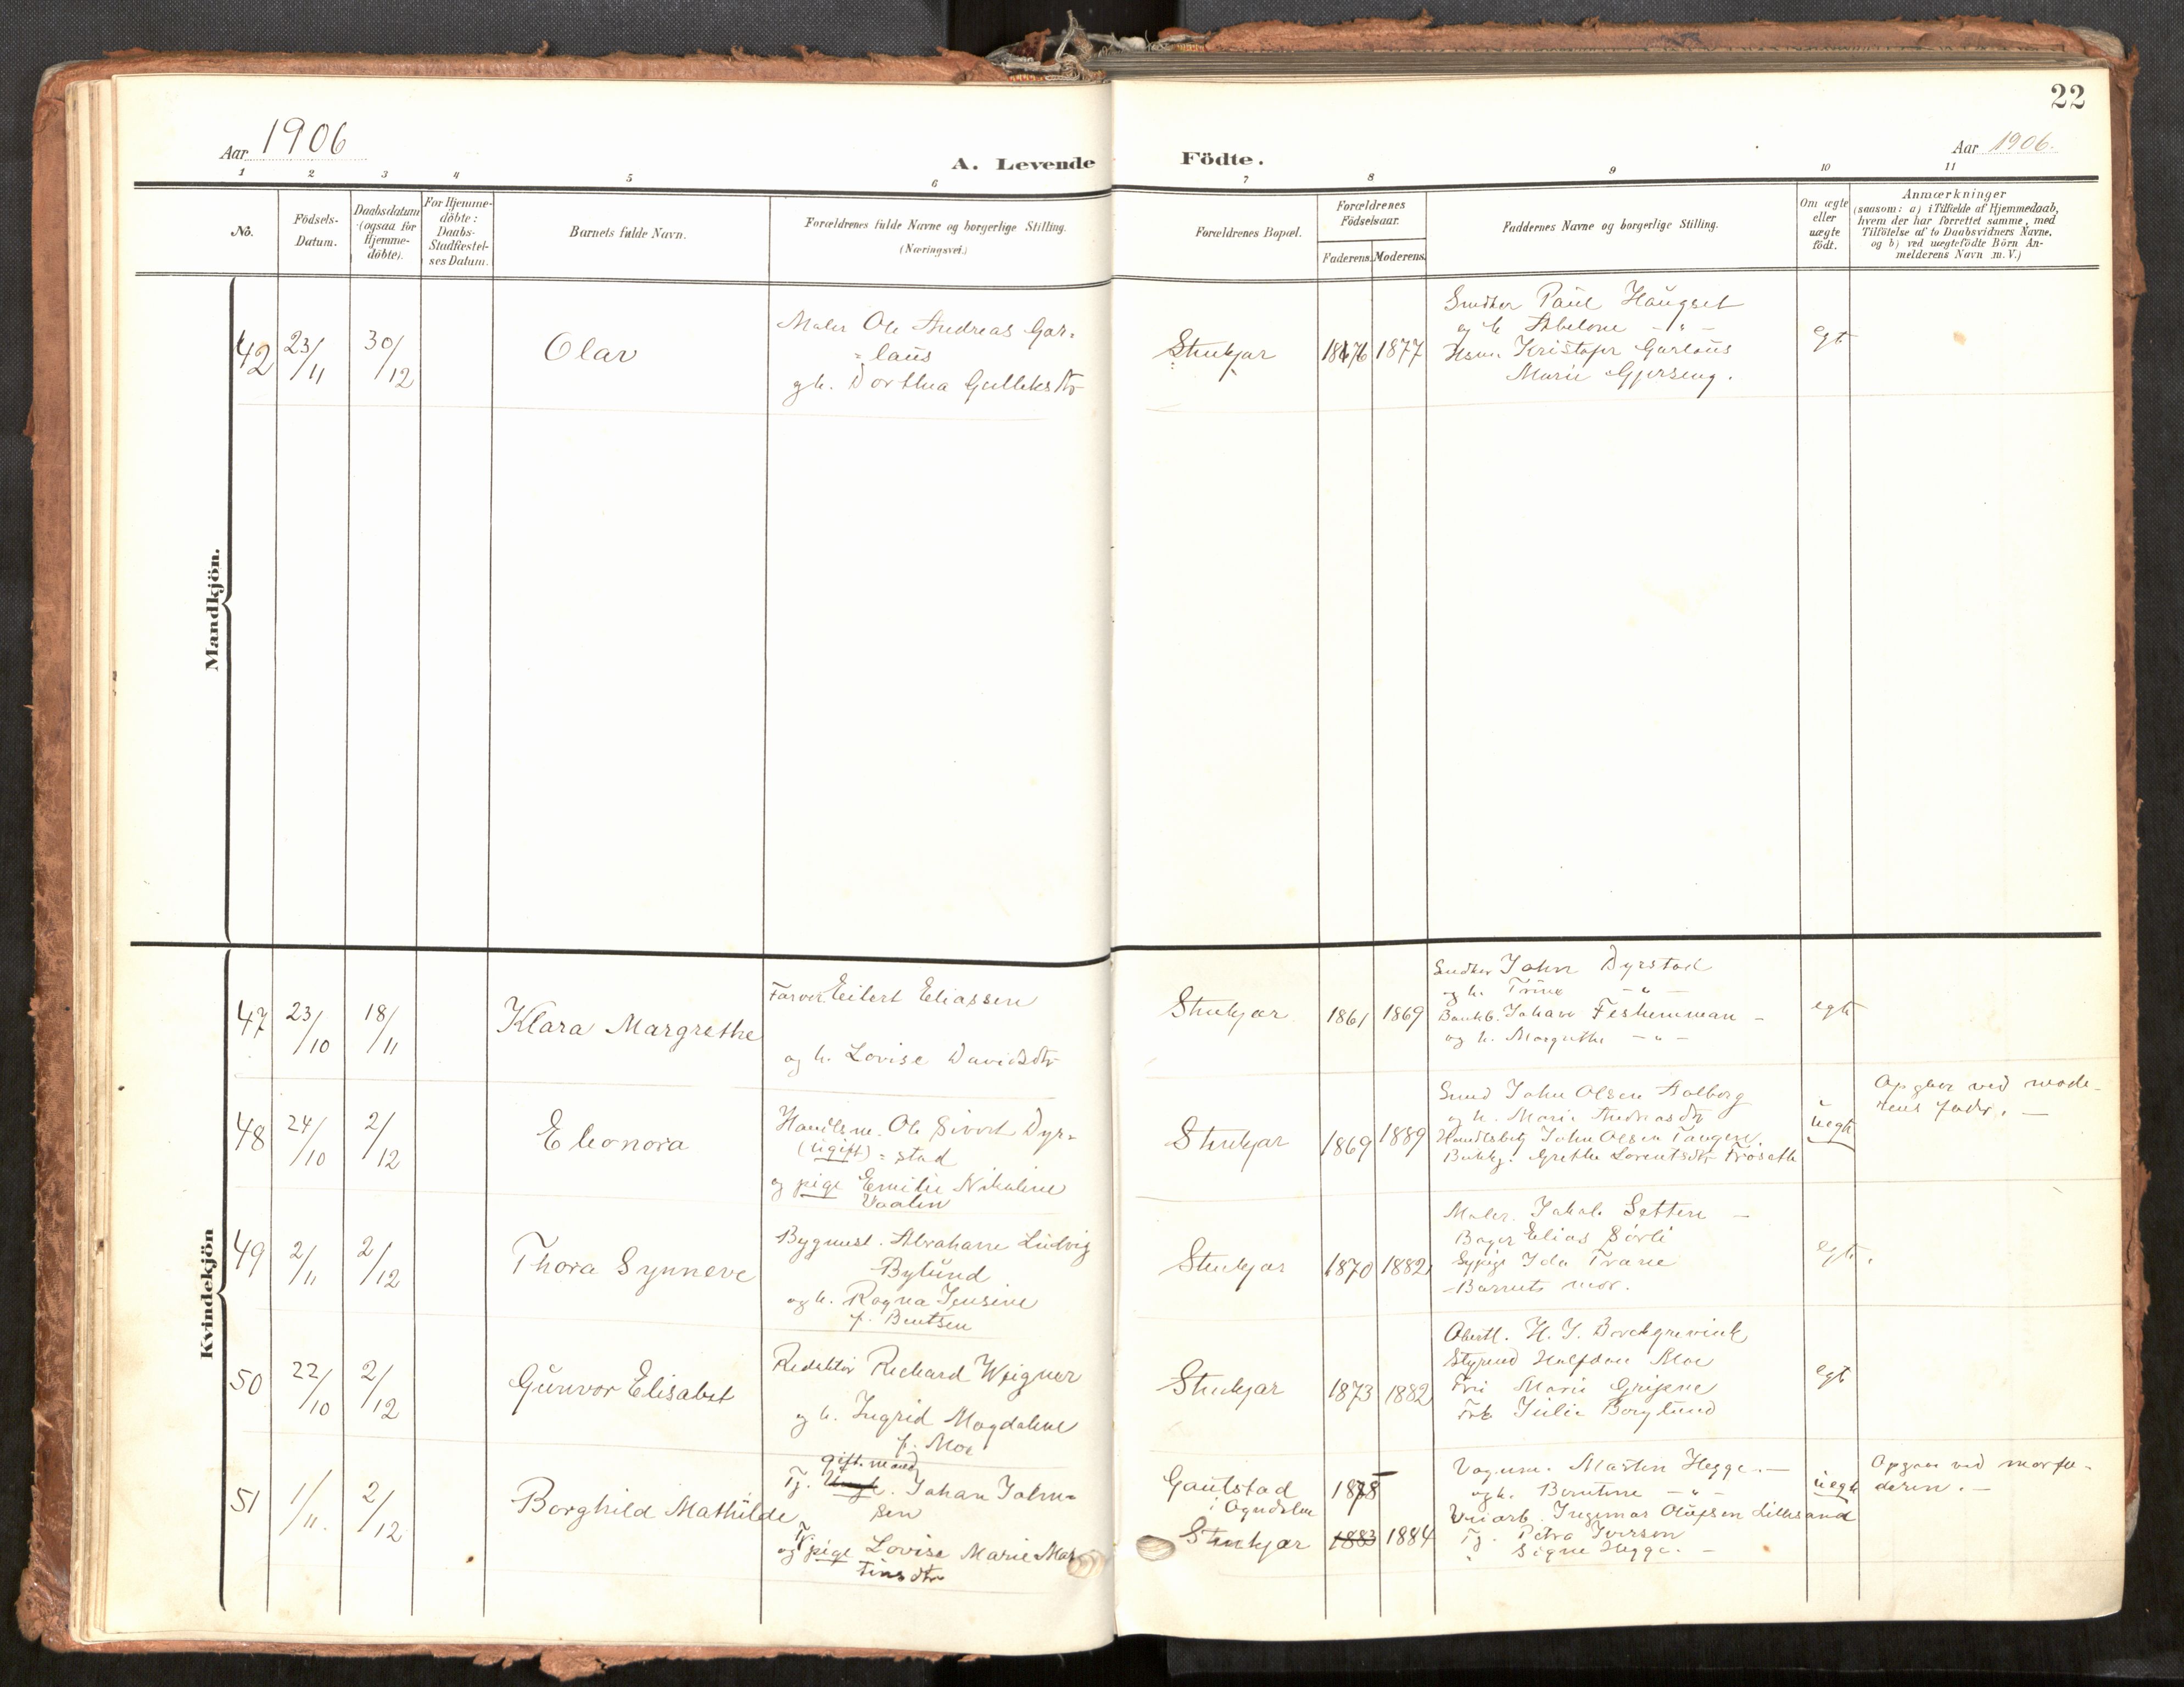 22
Aar 1906
A. Levende Födte.
Aar 1906.
1 2 3 4 5 6 7 8 9 10 11
No.
Födsels-
Datum.
Daabsdatum
(ogsaa for
Hjemme-
döbte).
For Hjemme-
döbte:
Daabs-
Stadfæstel-
ses Datum.
Barnets fulde Navn.
Forældrenes fulde Navne og borgerlige Stilling.
(Næringsvei.)
Forældrenes Bopæl.
Forældrenes
Födselsaar.
Faderens. Moderens.
Faddernes Navne og borgerlige Stilling.
Om ægte
eller
uægte
födt.
Anmærkninger
(saasom: a) i Tilfælde af Hjemmedaab,
hvem der har forrettet samme, med
Tilföielse af to Daabsvidners Navne,
og b) ved uægtefödte Börn An-
melderens Navn m. V.)
Mandkjön.
42 23/11 30/12 Olav
Maler Ole Andreas Gar-
= laus
g h. Dorthea Belleksdtr
Stenkjær 1876 1877
Snedker Paul Haugset
og h. Abelone - " -
Kristofer Garlaus
Marie Gjerseng.
egt
Kvindekjön
47 23/10 18/11 Klara Margrethe
Farver Eilert Eliassen
og h. Lovise Davidsdtr
Stenkjær 1861 1869
Snedker John Dyrstad
og h. Trine - " -
Johan Feshemman -
og h. Margrethe - " -
egte
48 24/10 2/12 Eleonora
Handelsm. Ole Sivert Dyr-
(ugift) = stad
og pige Emilie Nikoline
Vaalen
Stenkjær 1869 1889
Smed John Olsen Aalborg
og h. Marie Andreasdtr
Handelsbetj John Olsen Tangen.
Grethe Lorentsdtr Fröseth
uegte
Opgave ved mode-
rens fader. -
49 2/11 2/12 Thora Synneve
Bygmest. Abraham Ludvig
Bylund
og h. Ragna Jensine
f. Bentsen
Stenkjær 1870 1882
Maler. Jakob Setten -
Bager Elias Sørli
Sypige Ida Trane
Barnets mor.
egte.
50 22/10 2/12 Gunvor Elisabet
Redaktør Richard Weigner
og h. Ingrid Magdalene
f. Moe
Stenkjær 1873 1882
Oberstl. H. J. Borchgrevink
Halfdan Moe
Fru Marie
Frk Julie Borglund
egte
51 1/11. 2/12 Borghild Mathilde
gift mand
Tj. Johan John-
sen
Tj.
og pige Lovise Marie Mar
tinsdtr
Gautstad
i Ogndalen
Stenkjær
1878
1883 1884
Vognm. Martin Hegge. -
og h. Berntine - " -
Ingemar Olufsen Lillesand
Tj. Petra Iversen
" Signe Hegge. -
uegte
Opgave ved morfa-
deren. -